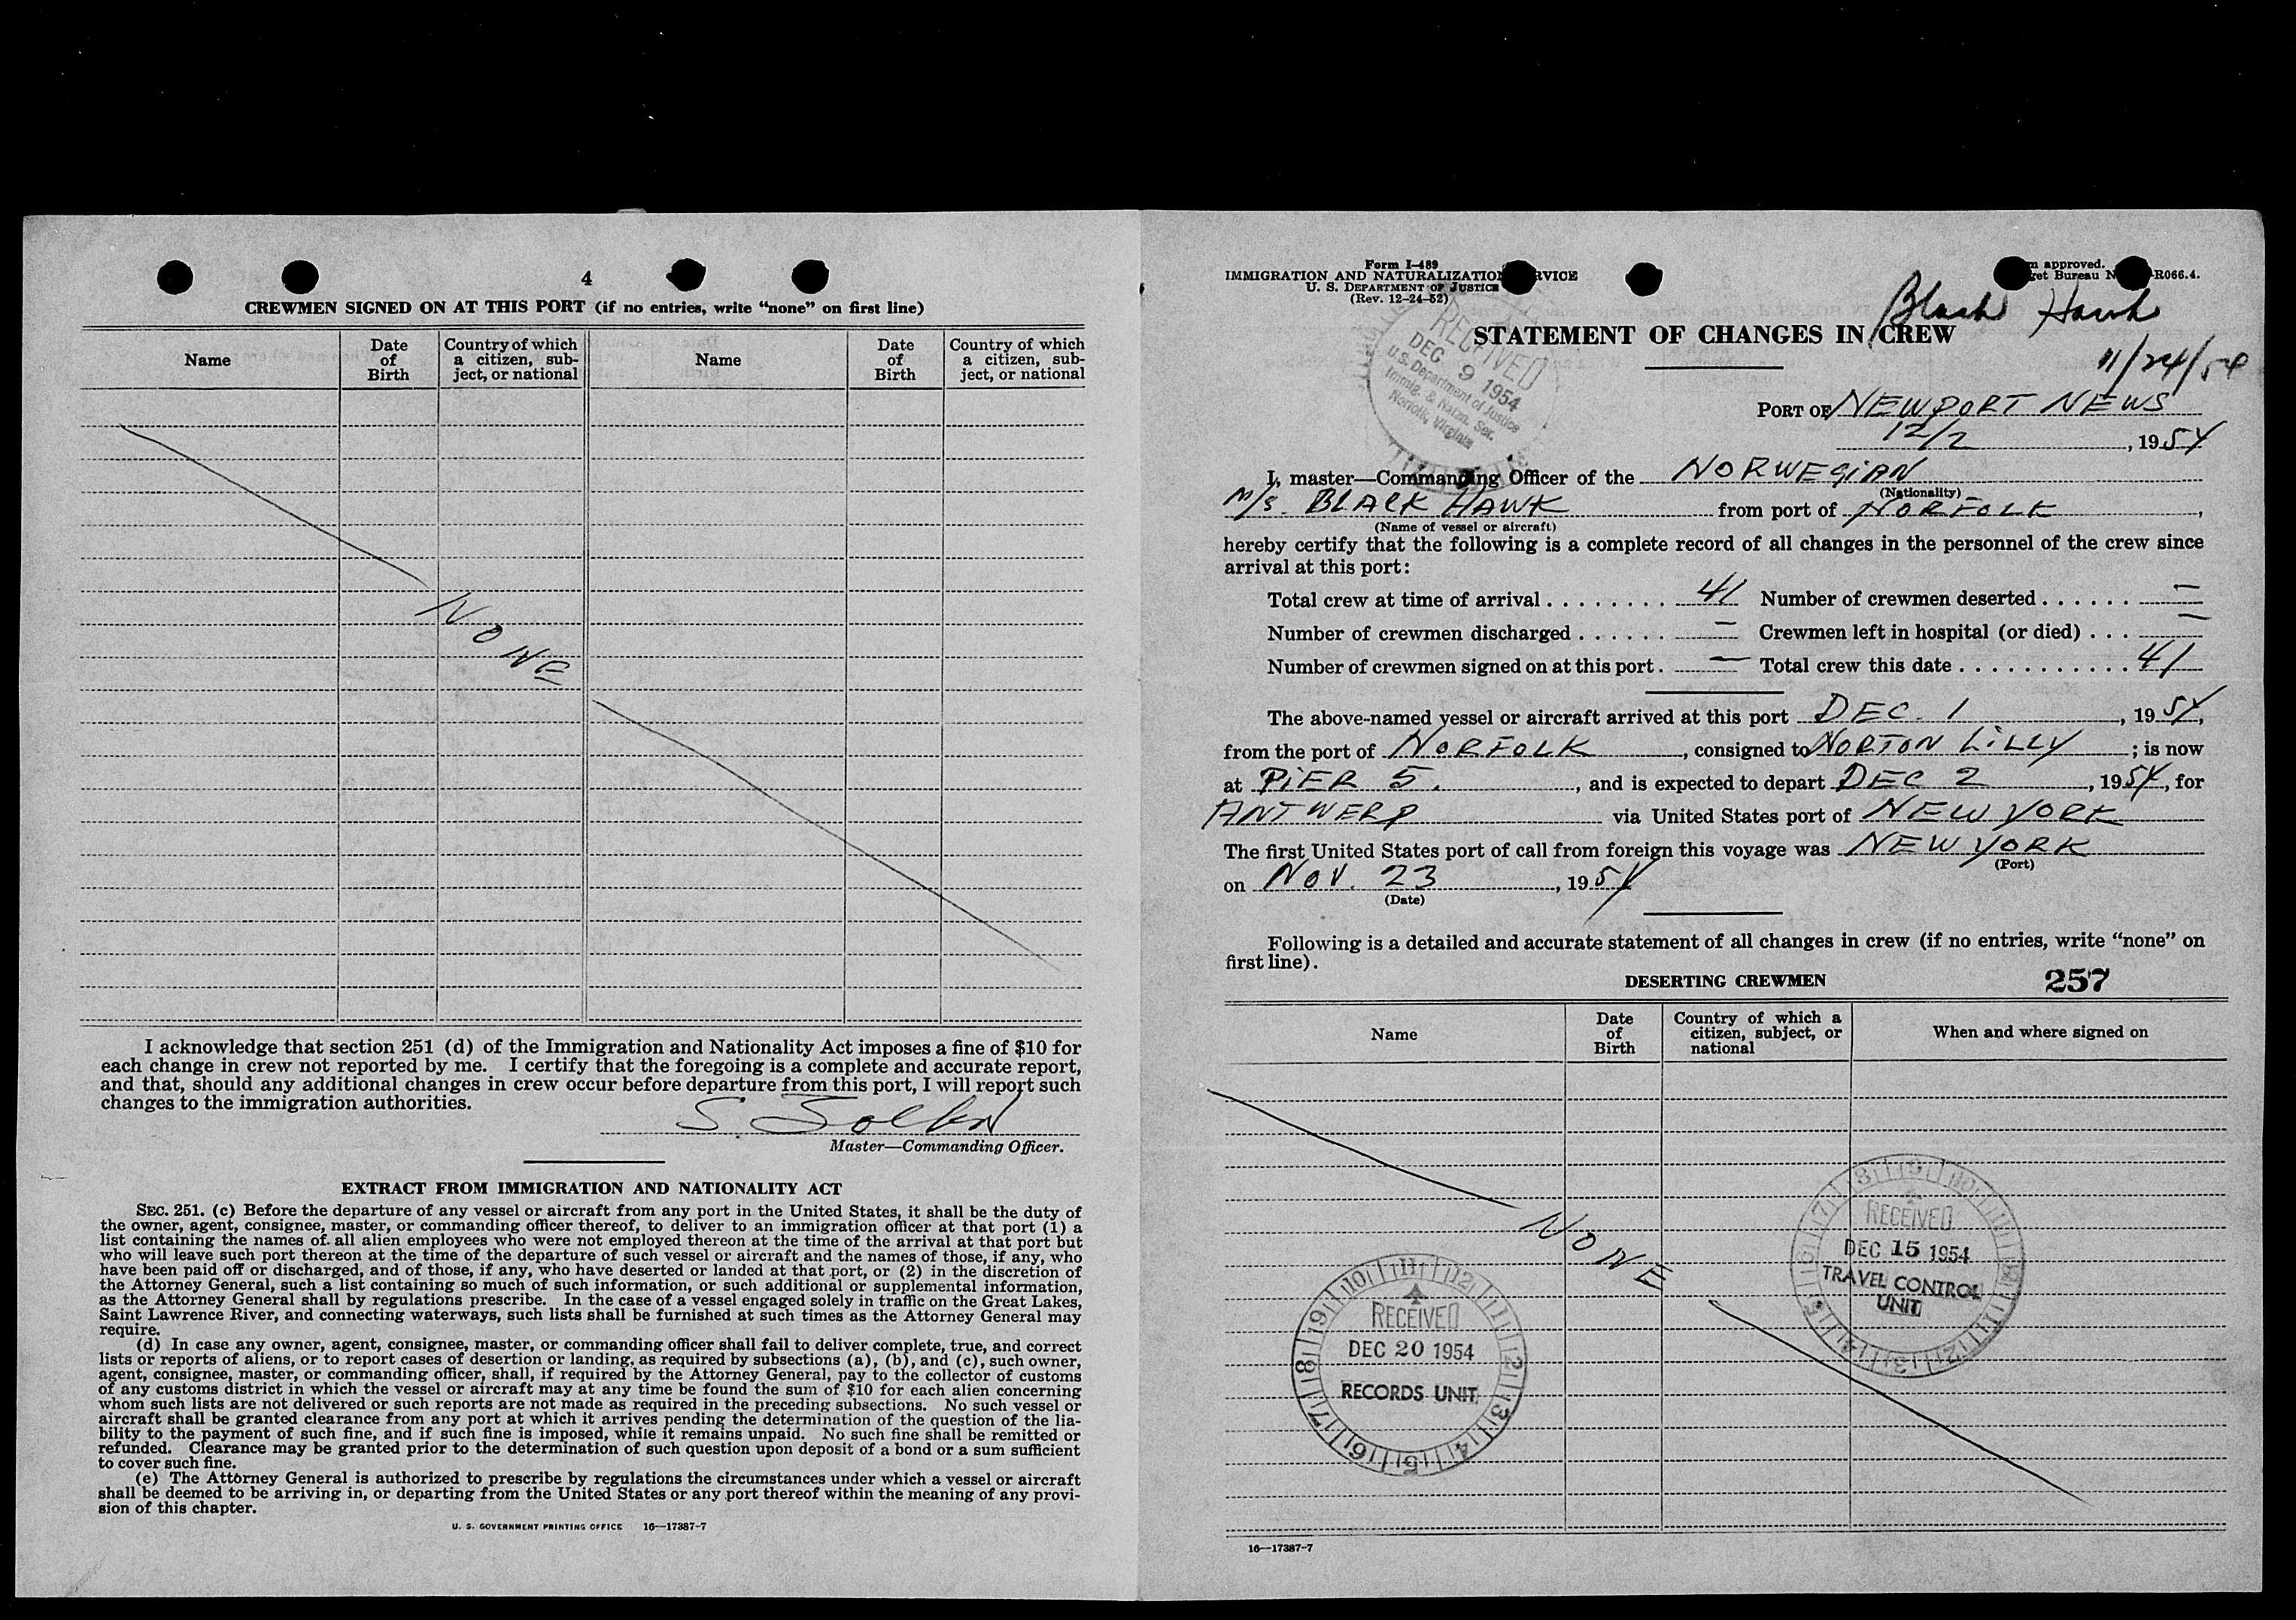 4
CREWMEN SIGNED ON AT THIS PORT (if no entries, write “none” on first line)
Name
Date of Birth
Country of which a citizen, sub-ject, or national
Name
Date of Birth
Country of which a citizen, sub-ject, or national
NONE
I acknowledge that section 251 (d) of the Immigration and Nationality Act imposes a fine of $10 for
each change in crew not reported by me. I certify that the foregoing is a complete and accurate report,
and that, should any additional changes in crew occur before departure from this port, I will report such
changes to the immigration authorities.
S.
Master—Commanding Officer.
EXTRACT FROM IMMIGRATION AND NATIONALITY ACT
SEC. 251. (c) Before the departure of any vessel or aircraft from any port in the United States, it shall be the duty of
the owner, agent, consignee, master, or commanding officer thereof, to deliver to an immigration officer at that port (1) a
list containing the names of all alien employees who were not employed thereon at the time of the arrival at that port but
who will leave such port thereon at the time of the departure of such vessel or aircraft and the names of those, if any, who
have been paid off or discharged, and of those, if any, who have deserted or landed at that port, or (2) in the discretion of
the Attorney General, such a list containing so much of such information, or such additional or supplemental information,
as the Attorney General shall by regulations prescribe. In the case of a vessel engaged solely in traffic on the Great Lakes,
Saint Lawrence River, and connecting waterways, such lists shall be furnished at such times as the Attorney General may
require.
(d) In case any owner, agent, consignee, master, or commanding officer shall fail to deliver complete, true, and correct
lists or reports of aliens, or to report cases of desertion or landing, as required by subsections (a), (b), and (c), such owner,
agent, consignee, master, or commanding officer, shall, if required by the Attorney General, pay to the collector of customs
of any customs district in which the vessel or aircraft may at any time be found the sum of $10 for each alien concerning
whom such lists are not delivered or such reports are not made as required in the preceding subsections. No such vessel or
aircraft shall be granted clearance from any port at which it arrives pending the determination of the question of the lia-
bility to the payment of such fine, and if such fine is imposed, while it remains unpaid. No such fine shall be remitted or
refunded. Clearance may be granted prior to the determination of such question upon deposit of a bond or a sum sufficient
to cover such fine.
(e) The Attorney General is authorized to prescribe by regulations the circumstances under which a vessel or aircraft
shall be deemed to be arriving in, or departing from the United States or any port thereof within the meaning of any provi-
sion of this chapter.
U. S. GOVERNMENT PRINTING OFFICE 16—17387-7
Form I-489
IMMIGRATION AND NATURALIZATION SERVICE
U. S. DEPARTMENT OF JUSTICE
(Rev. 12-24-52)
approved.
Bureau R066.4.
Black Hawk
11/24/54
RECEIVED
DEC 9 1954
U.S. Department of Justice
Immig. & Natzn. Ser.
Norfolk, Virginia
STATEMENT OF CHANGES IN CREW
PORT OF NEWPORT NEWS
12/2, 1954
I, master—Commanding Officer of the NORWEGIAN
(Nationality)
M/S. BLACK HAWK from port of NORFOLK,
(Name of vessel or aircraft)
hereby certify that the following is a complete record of all changes in the personnel of the crew since
arrival at this port:
Total crew at time of arrival . . . . . . . . 41 Number of crewmen deserted . . . . . . —
Number of crewmen discharged . . . . . . — Crewmen left in hospital (or died) . . . —
Number of crewmen signed on at this port . — Total crew this date . . . . . . . . . . . . 41
The above-named vessel or aircraft arrived at this port DEC. 1, 1954,
from the port of NORFOLK, consigned to NORTON LILLY; is now
at PIER 5., and is expected to depart DEC 2, 1954, for
ANTWERP via United States port of NEW YORK
The first United States port of call from foreign this voyage was NEW YORK
(Port)
on NOV. 23, 1954
(Date)
Following is a detailed and accurate statement of all changes in crew (if no entries, write “none” on
first line).
DESERTING CREWMEN 257
Name
Date of Birth
Country of which a citizen, subject, or national
When and where signed on
NONE
RECEIVED
DEC 15 1954
TRAVEL CONTROL
UNIT
RECEIVED
DEC 20 1954
RECORDS UNIT
16—17387-7